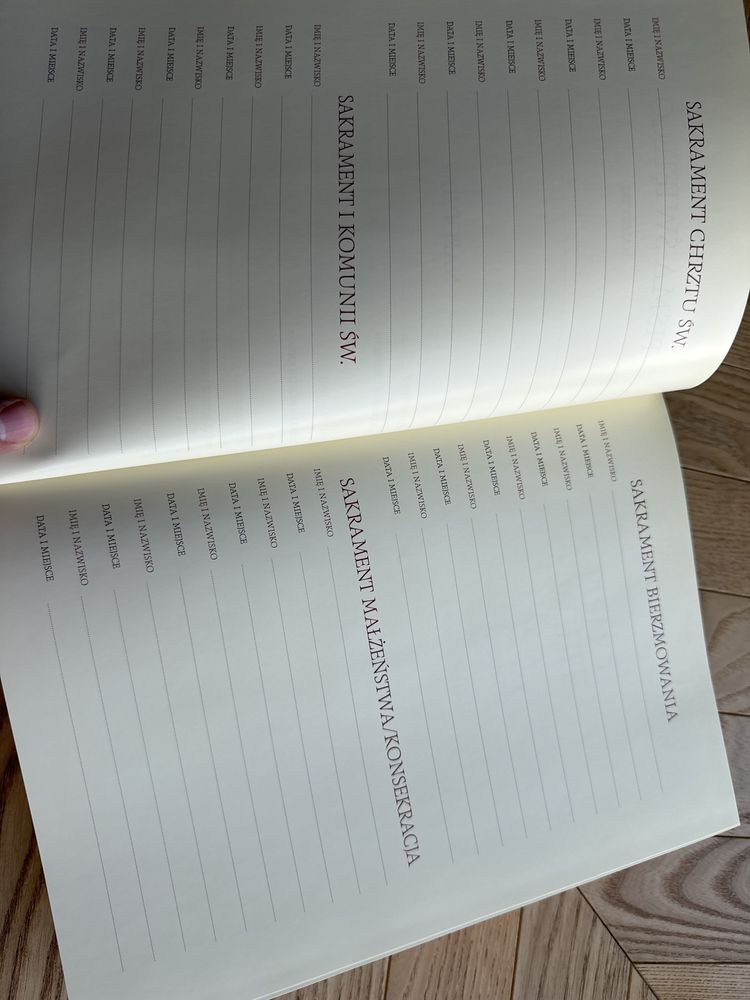 SAKRAMENT CHRZTU ŚW.
IMIĘ I NAZWISKO
DATA I MIEJSCE
IMIĘ I NAZWISKO
DATA I MIEJSCE
IMIĘ I NAZWISKO
DATA I MIEJSCE
IMIĘ I NAZWISKO
DATA I MIEJSCE
IMIĘ I NAZWISKO
DATA I MIEJSCE
SAKRAMENT I KOMUNII ŚW.
IMIĘ I NAZWISKO
DATA I MIEJSCE
IMIĘ I NAZWISKO
DATA I MIEJSCE
IMIĘ I NAZWISKO
DATA I MIEJSCE
IMIĘ I NAZWISKO
DATA I MIEJSCE
IMIĘ I NAZWISKO
DATA I MIEJSCE
SAKRAMENT BIERZMOWANIA
IMIĘ I NAZWISKO
DATA I MIEJSCE
IMIĘ I NAZWISKO
DATA I MIEJSCE
IMIĘ I NAZWISKO
DATA I MIEJSCE
IMIĘ I NAZWISKO
DATA I MIEJSCE
IMIĘ I NAZWISKO
DATA I MIEJSCE
SAKRAMENT MAŁŻEŃSTWA/KONSEKRACJA
IMIĘ I NAZWISKO
DATA I MIEJSCE
IMIĘ I NAZWISKO
DATA I MIEJSCE
IMIĘ I NAZWISKO
DATA I MIEJSCE
IMIĘ I NAZWISKO
DATA I MIEJSCE
IMIĘ I NAZWISKO
DATA I MIEJSCE